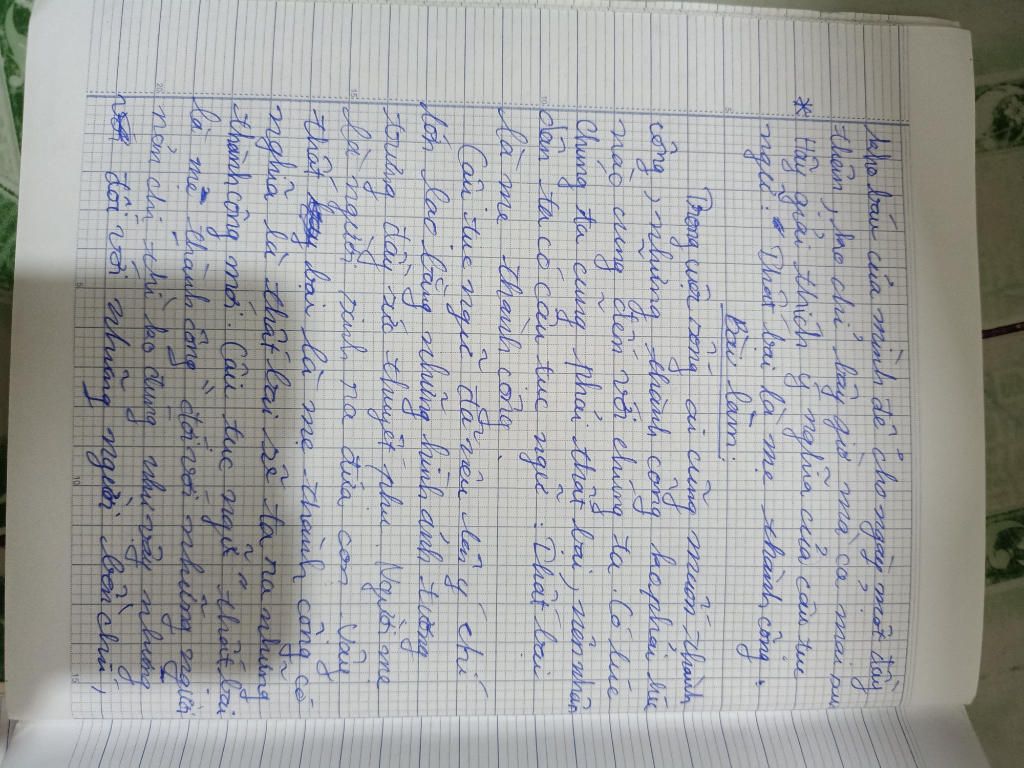 báu của mình để cho ngày một đầy
thêm, chứ bây giờ mà cả mai sau
* Hãy giải thích ý nghĩa của câu tục
ngữ: " Thất bại là mẹ thành công "
Bài làm:
Trong cuộc sống ai cũng muốn thành
công, những thành công ko phải lúc
nào cũng đến với chúng ta. Có lúc
chúng ta cũng phải thất bại, nên nhân
dân ta có câu tục ngữ: Thất bại
là mẹ thành công.
Câu tục ngữ đã nêu lên ý chí
lớn lao bằng những hình ảnh tưởng
tượng đầy sức thuyết phục. Người mẹ
là người sinh ra đứa con. Vậy
thất bại là mẹ thành công có
nghĩa là thất bại sẽ tạo ra những
thành công mới. Câu tục ngữ " thất bại
là mẹ thành công " đối với những người
nản chí thì ko đúng như vậy nhưng
đối với những người bền chí,